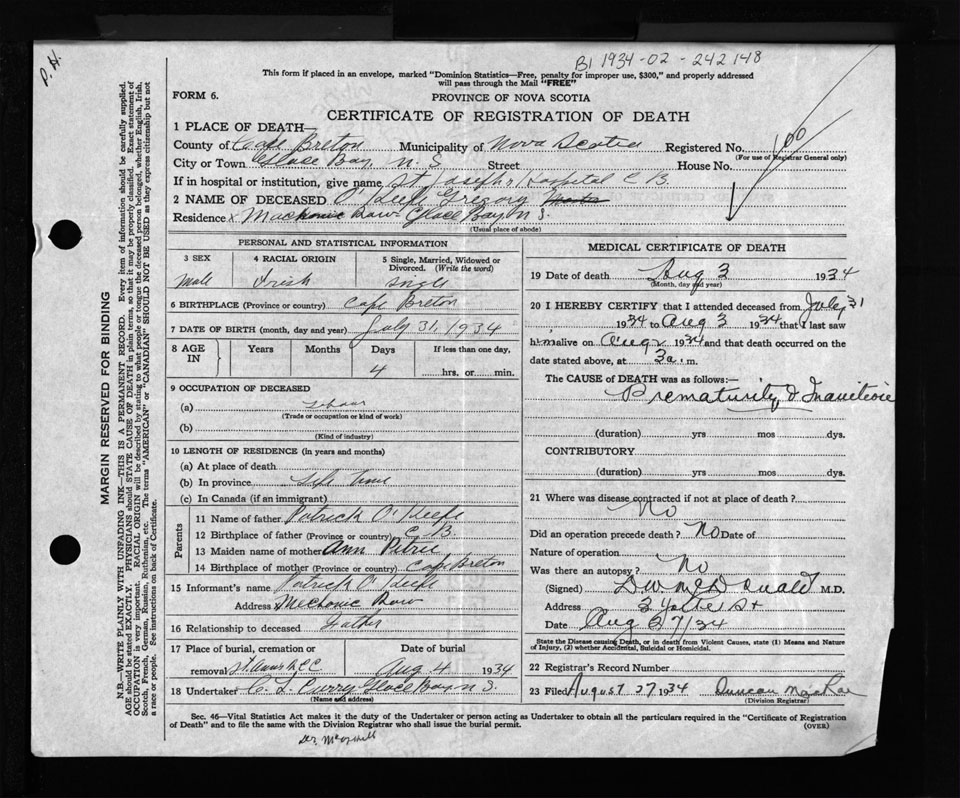 B1 1934-02-242148
P. H.
This form if placed in an envelope, marked "Dominion Statistics—Free, penalty for improper use, $300," and properly addressed
will pass through the Mail "FREE"
FORM 6.
PROVINCE OF NOVA SCOTIA
CERTIFICATE OF REGISTRATION OF DEATH
100
1 PLACE OF DEATH—
County of Cape Breton Municipality of Nova Scotia Registered No.
(For use of Registrar General only)
City or Town Glace Bay N. S Street House No.
If in hospital or institution, give name St Josephs Hospital C B.
2 NAME OF DECEASED O'Keefe Gregory
Residence x Row Glace Bay N S.
(Usual place of abode)
PERSONAL AND STATISTICAL INFORMATION
3 SEX 4 RACIAL ORIGIN 5 Single, Married, Widowed or
Divorced. (Write the word)
male Irish Single
6 BIRTHPLACE (Province or country) Cape Breton
7 DATE OF BIRTH (month, day and year) July 31, 1934
8 AGE IN Years Months Days If less than one day,
4 hrs. or min.
9 OCCUPATION OF DECEASED
(a)
(Trade or occupation or kind of work)
(b)
(Kind of industry)
10 LENGTH OF RESIDENCE (in years and months)
(a) At place of death
(b) In province Life time
(c) In Canada (if an immigrant)
Parents
11 Name of father Patrick O'Keefe
12 Birthplace of father (Province or country) C B.
13 Maiden name of mother Ann Petrie
14 Birthplace of mother (Province or country) Cape Breton
15 Informant's name Patrick O'Keefe
Address Row
16 Relationship to deceased Father
17 Place of burial, cremation or Date of burial
removal St. Anns R.C.C Aug 4 1934
18 Undertaker C. L. Curry Glace Bay N S.
(Name and address)
MEDICAL CERTIFICATE OF DEATH
19 Date of death Aug 3 1934
(Month, day and year)
20 I HEREBY CERTIFY that I attended deceased from July 31
1934 to Aug 3 1934 that I last saw
him alive on Aug 2 1934 and that death occurred on the
date stated above, at 3 a. m.
The CAUSE of DEATH was as follows:
Prematurity & Inanition
(duration) yrs mos dys.
CONTRIBUTORY
(duration) yrs mos dys.
21 Where was disease contracted if not at place of death?
No
Did an operation precede death? No Date of
Nature of operation
Was there an autopsy? No
(Signed) McDonald M.D.
Address St
Date Aug 27/34
State the Disease causing Death, or in death from Violent Causes, state (1) Means and Nature
of Injury, (2) whether Accidental, Suicidal or Homicidal.
22 Registrar's Record Number
23 Filed August 27 1934 Duncan MacRae
(Division Registrar)
Sec. 46—Vital Statistics Act makes it the duty of the Undertaker or person acting as Undertaker to obtain all the particulars required in the "Certificate of Registration
of Death" and to file the same with the Division Registrar who shall issue the burial permit. (OVER)
MARGIN RESERVED FOR BINDING
N.B.—WRITE PLAINLY WITH UNFADING INK—THIS IS A PERMANENT RECORD. Every item of information should be carefully supplied.
AGE should be stated EXACTLY. PHYSICIANS should STATE CAUSE OF DEATH in plain terms, so that it may be properly classified. Exact statement of
OCCUPATION is very important. RACIAL ORIGIN will be described by stating to what people or tongue the deceased person belonged, whether English, Irish,
Scotch, French, German, Russian, Ruthenian, etc. The terms "AMERICAN" or "CANADIAN" SHOULD NOT BE USED as they express citizenship but not
a race or people. See instructions on back of Certificate.